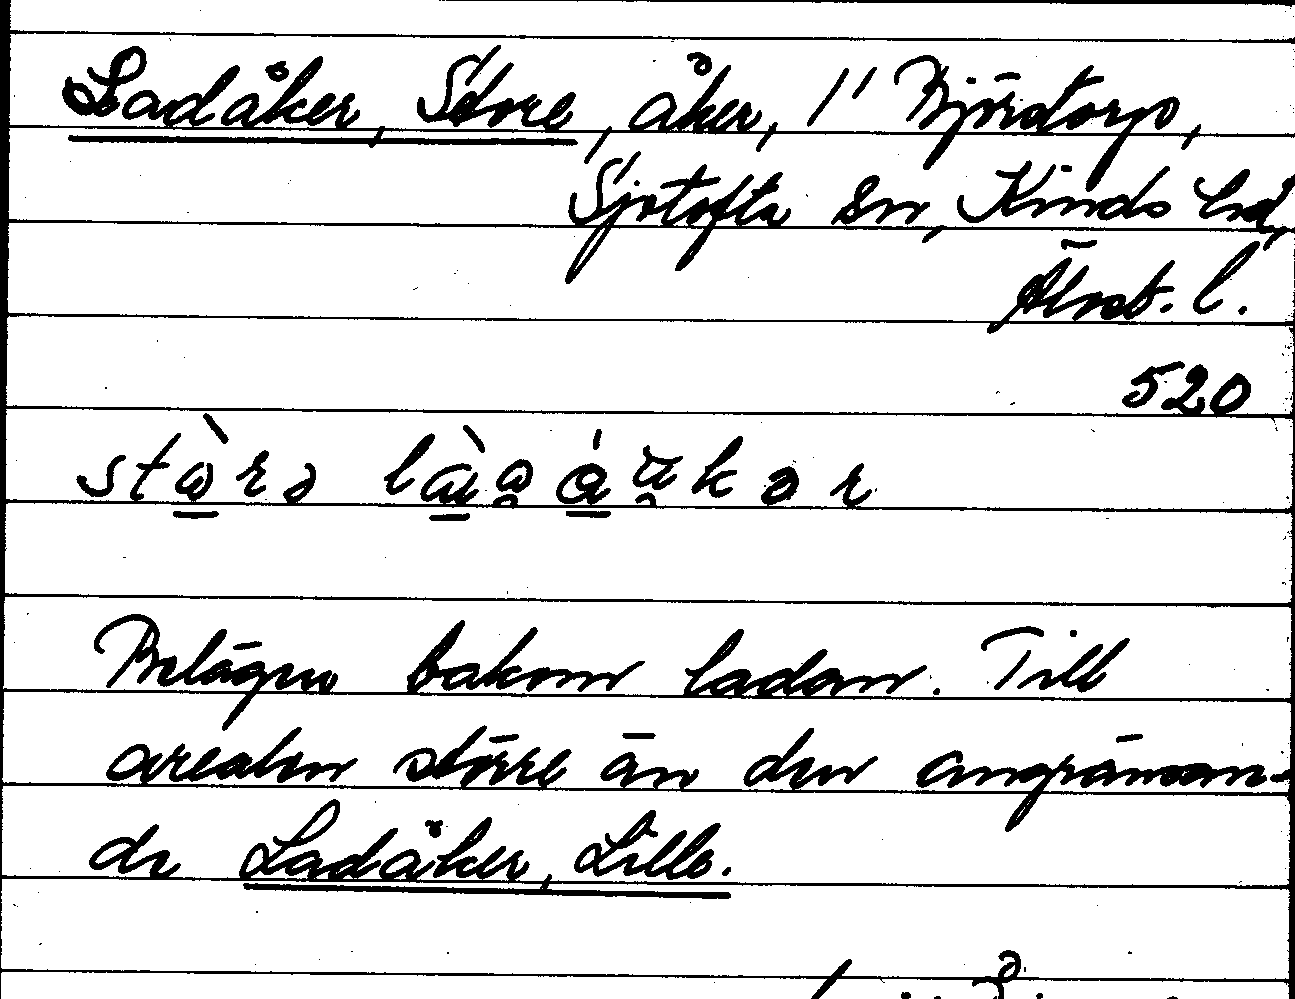 Ladåker, Store, åker, 1" Björdtorp,
Sjötofta sn, Kinds hd,
Älvsb. l.
520
Belägen bakom ladan. Till
arealen större än den angränsan-
de Ladåker, Lille.